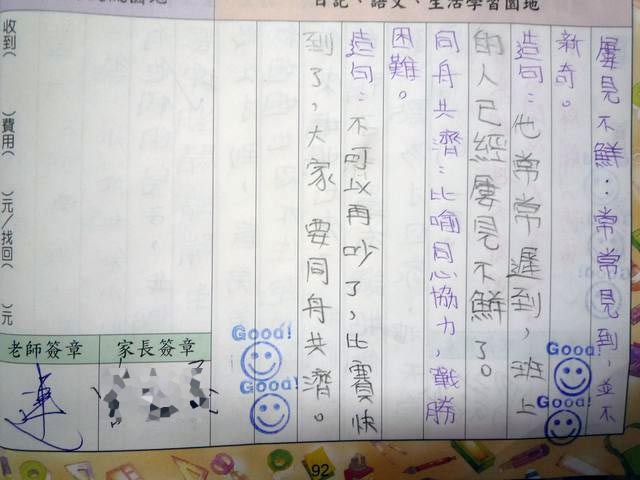 日記、語文、生活學習園地
屢見不鮮：常常見到，並不
新奇。
造句：他常常遲到，班上
的人已經屢見不鮮了。
同舟共濟：比喻同心協力，戰勝
困難。
造句：不可以再吵了，比賽快
到了，大家要同舟共濟。
Good!
Good!
Good!
Good!
收到（　）費用（　）元/找回（　）元
家長簽章
老師簽章
92